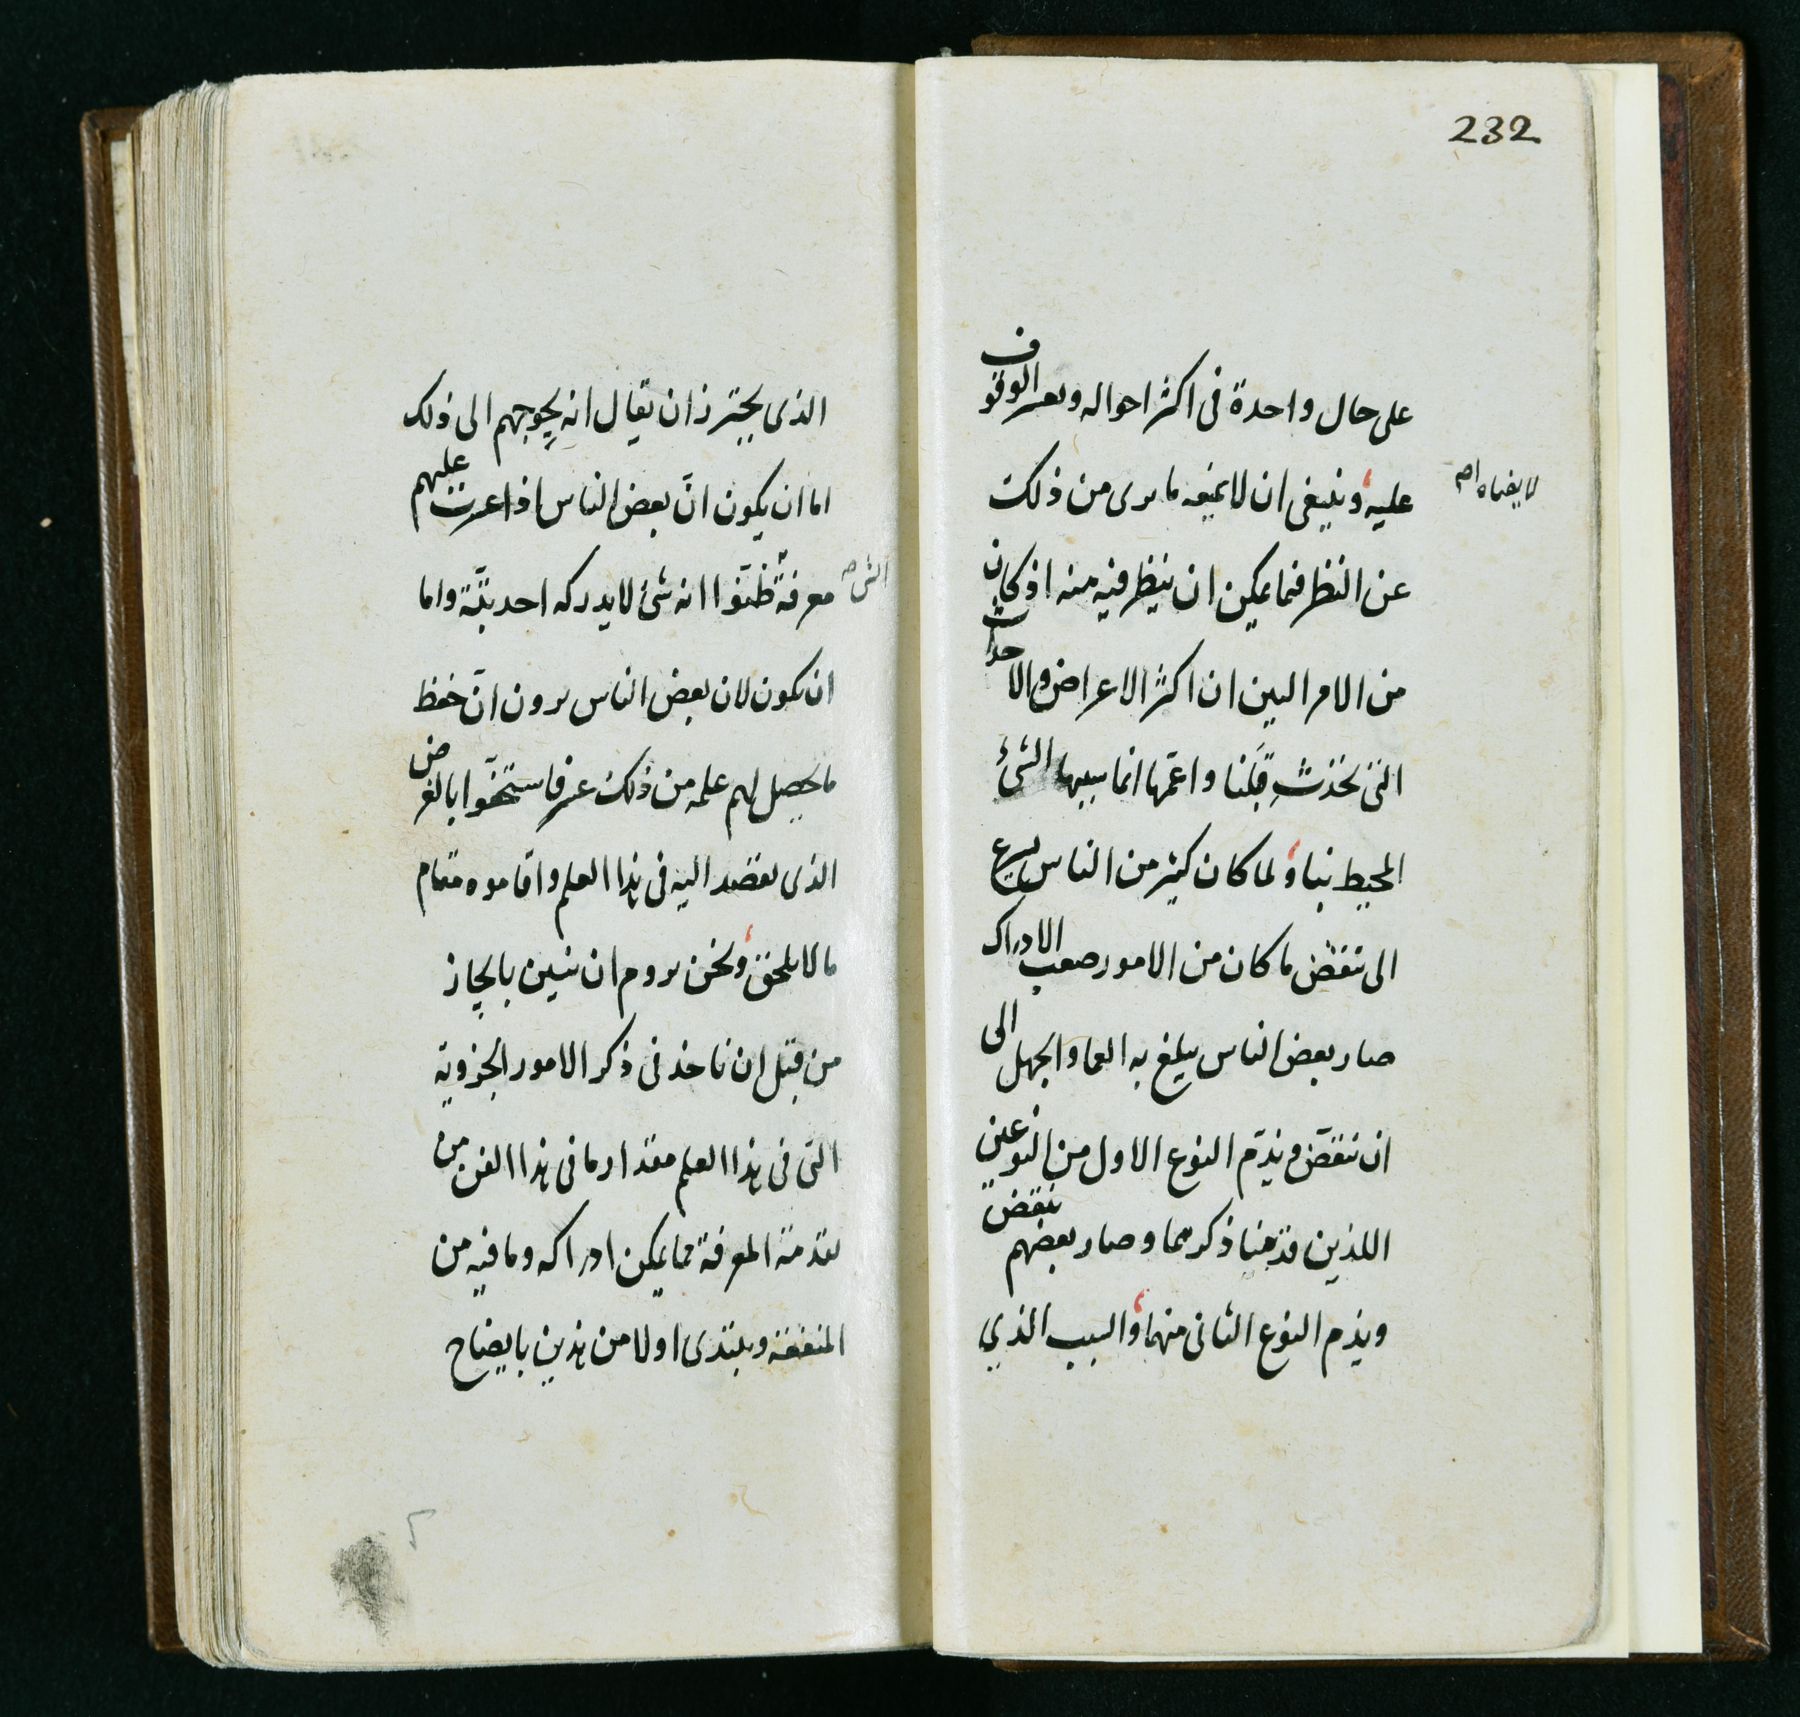 232
على حال واحدة فى اكثر احواله وبعسر الوقوف
عليه وينبغى ان لا يمنعه ما يرى من ذلك
عن النظر فيما يمكن ان ينظر فيه منه اذ كان
من الامر البين ان اكثر الاعراض والاحداث
التى تحدث قبلنا واعمّها انما سببها الشئ
المحيط بنا ولما كان كثير من الناس يسرع
الى تنقض ما كان من الامور صعب الادراك
صار بعض الناس يبلغ به العما والجهل الى
ان تنقض ويذمّ النوع الاول من النوعين
اللذين قدمنا ذكرهما وصار بعضهم ينقض
ويذم النوع الثانى منهما والسبب الذي
الذى يجترز ان يقال انه يحوجهم الى ذلك
اما ان يكون انّ بعض الناس اذا عسرت عليهم
معرفة ظنّوا انه شئ لا يدركه احد بتّة واما
ان يكون لان بعض الناس يرون انّ حفظ
ما يحصل لهم علمه من ذلك عسر فاستخفّوا بالغرض
الذى يقصد اليه فى هذا العلم واقاموه مقام
ما لا يلحق ونحن نروم ان نبين بايجاز
من قبل ان ناخذ فى ذكر الامور الجزوية
التى فى هذا العلم مقدار ما فى هذا الفن من
تقدمة المعرفة مما يمكن ادراكه وما فيه من
المنفعة ونبتدى اولا من هذين بايضاح